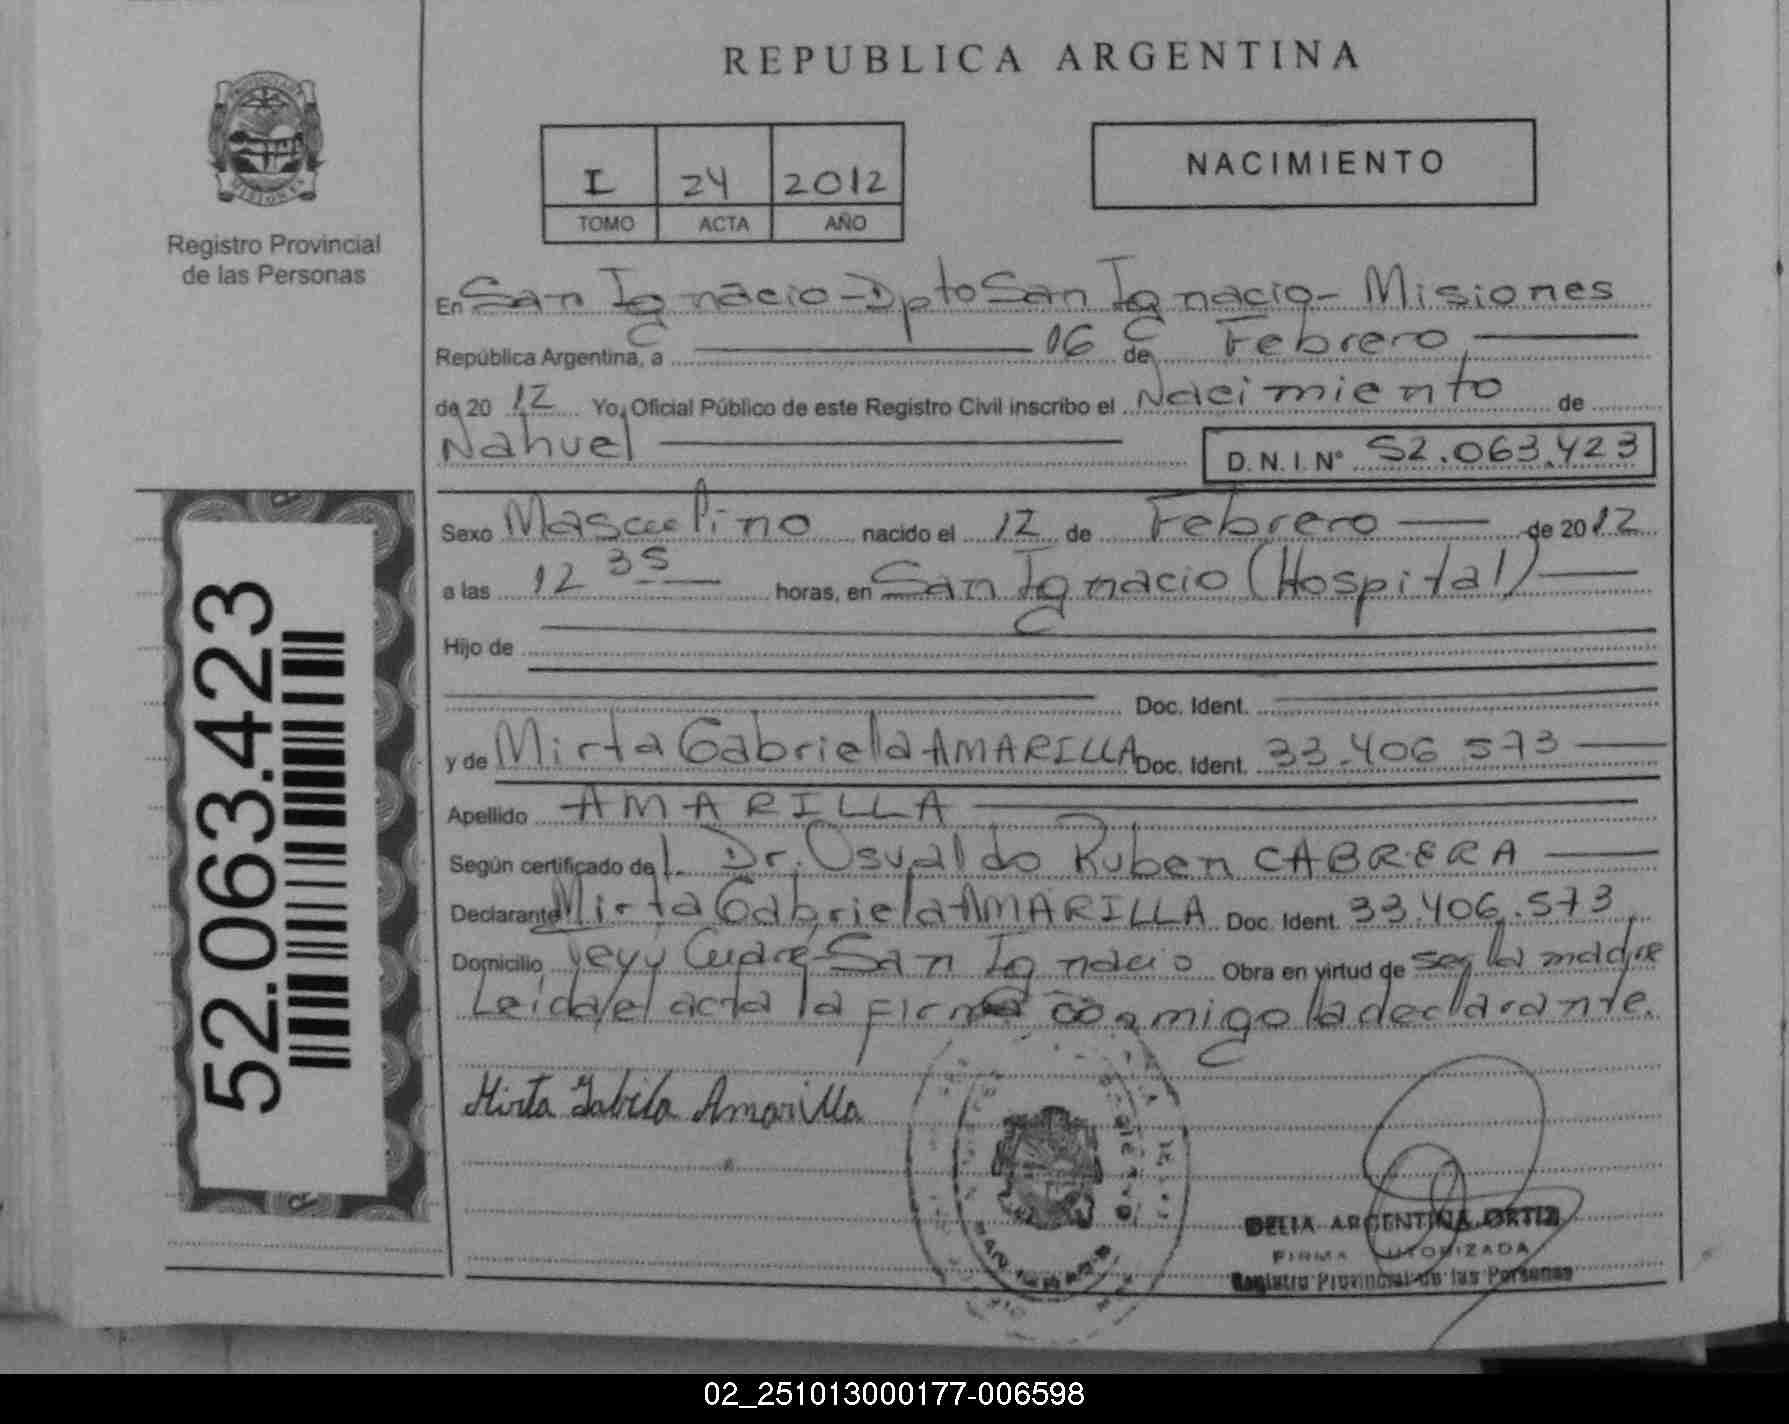 REPUBLICA ARGENTINA
Registro Provincial
de las Personas
I 24 2012
TOMO ACTA AÑO
NACIMIENTO
En San Ignacio - Dpto San Ignacio - Misiones
República Argentina, a 16 de Febrero
de 2012 Yo, Oficial Público de este Registro Civil inscribo el Nacimiento de
Nahuel D.N.I. N° 52.063.423
Sexo Masculino nacido el 12 de Febrero de 2012
a las 12 35 horas, en San Ignacio (Hospital)
Hijo de
Doc. Ident.
y de Mirta Gabriela AMARILLA Doc. Ident. 33.406.573
Apellido AMARILLA
Según certificado del Dr. Osvaldo Ruben CABRERA
Declarante Mirta Gabriela AMARILLA Doc. Ident. 33.406.573
Domicilio Teyú Cuaré San Ignacio Obra en virtud de ser la madre
Leida el acta la firma conmigo la declarante.
Mirta Gabriela Amarilla
DELIA ARGENTINA ORTIZ
FIRMA AUTORIZADA
Registro Provincial de las Personas
52.063.423
02_251013000177-006598